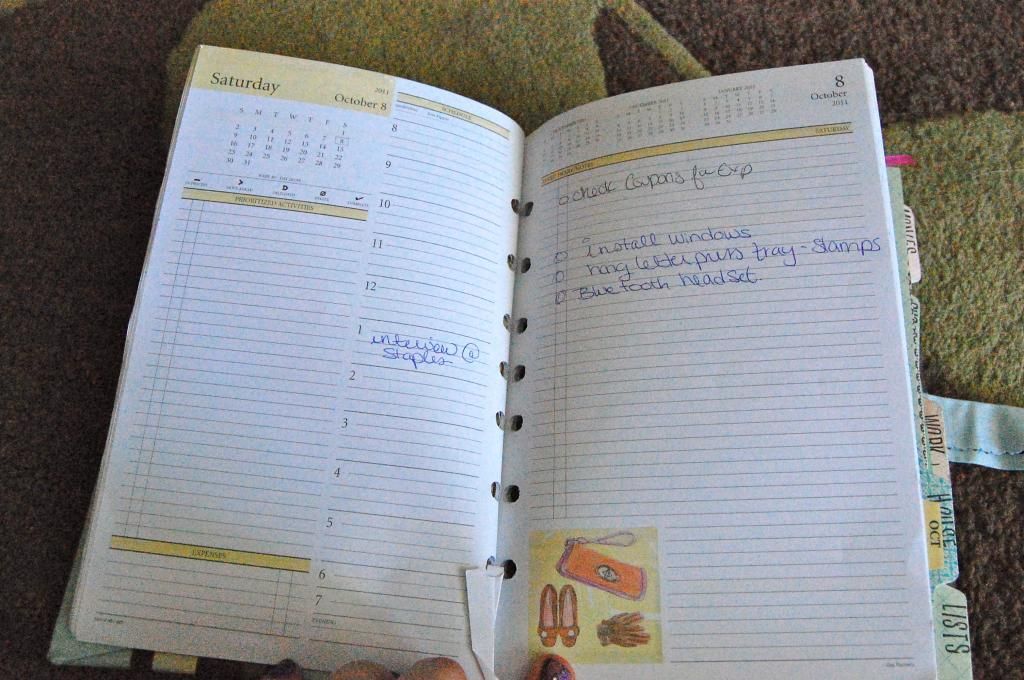 Saturday
2011
October 8
S M T W T F S
1
2 3 4 5 6 7 8
9 10 11 12 13 14 15
16 17 18 19 20 21 22
23 24 25 26 27 28 29
30 31
PRIORITIZED ACTIVITIES
EXPENSES
SCHEDULE
8
9
10
11
12
1
interview @
Staples
2
3
4
5
6
7
EVENING
DECEMBER 2011
JANUARY 2012
8
October
2011
SATURDAY
check Coupons for Exp
install windows
hang letterpress tray - Stamps
Bluetooth headset.
WORK
HOUSE
OCT
LISTS